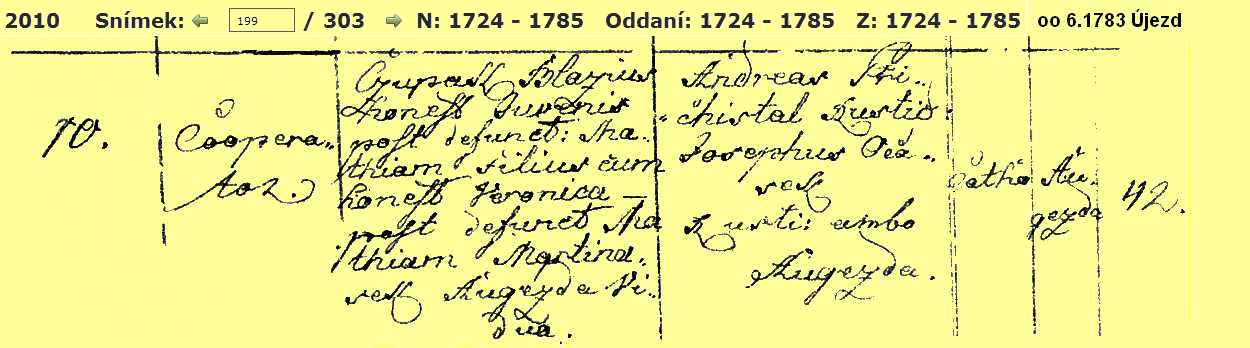 2010 Snímek: 199 / 303 N: 1724 - 1785 Oddaní: 1724 - 1785 Z: 1724 - 1785 oo 6.1783 Újezd
10.
Coopera-
tor.
Czupall Blazius
Honest Juvenis
post defunct: Ma-
thiam Filius cum
honest Veronica
post defunct Ma
thiam Martina-
sell Augezda Vi-
dua.
Andreas Při-
chistal Rustic:
Josephus
sell
Rusti: ambo
Augezda.
Catho
Au-
gezda
42.